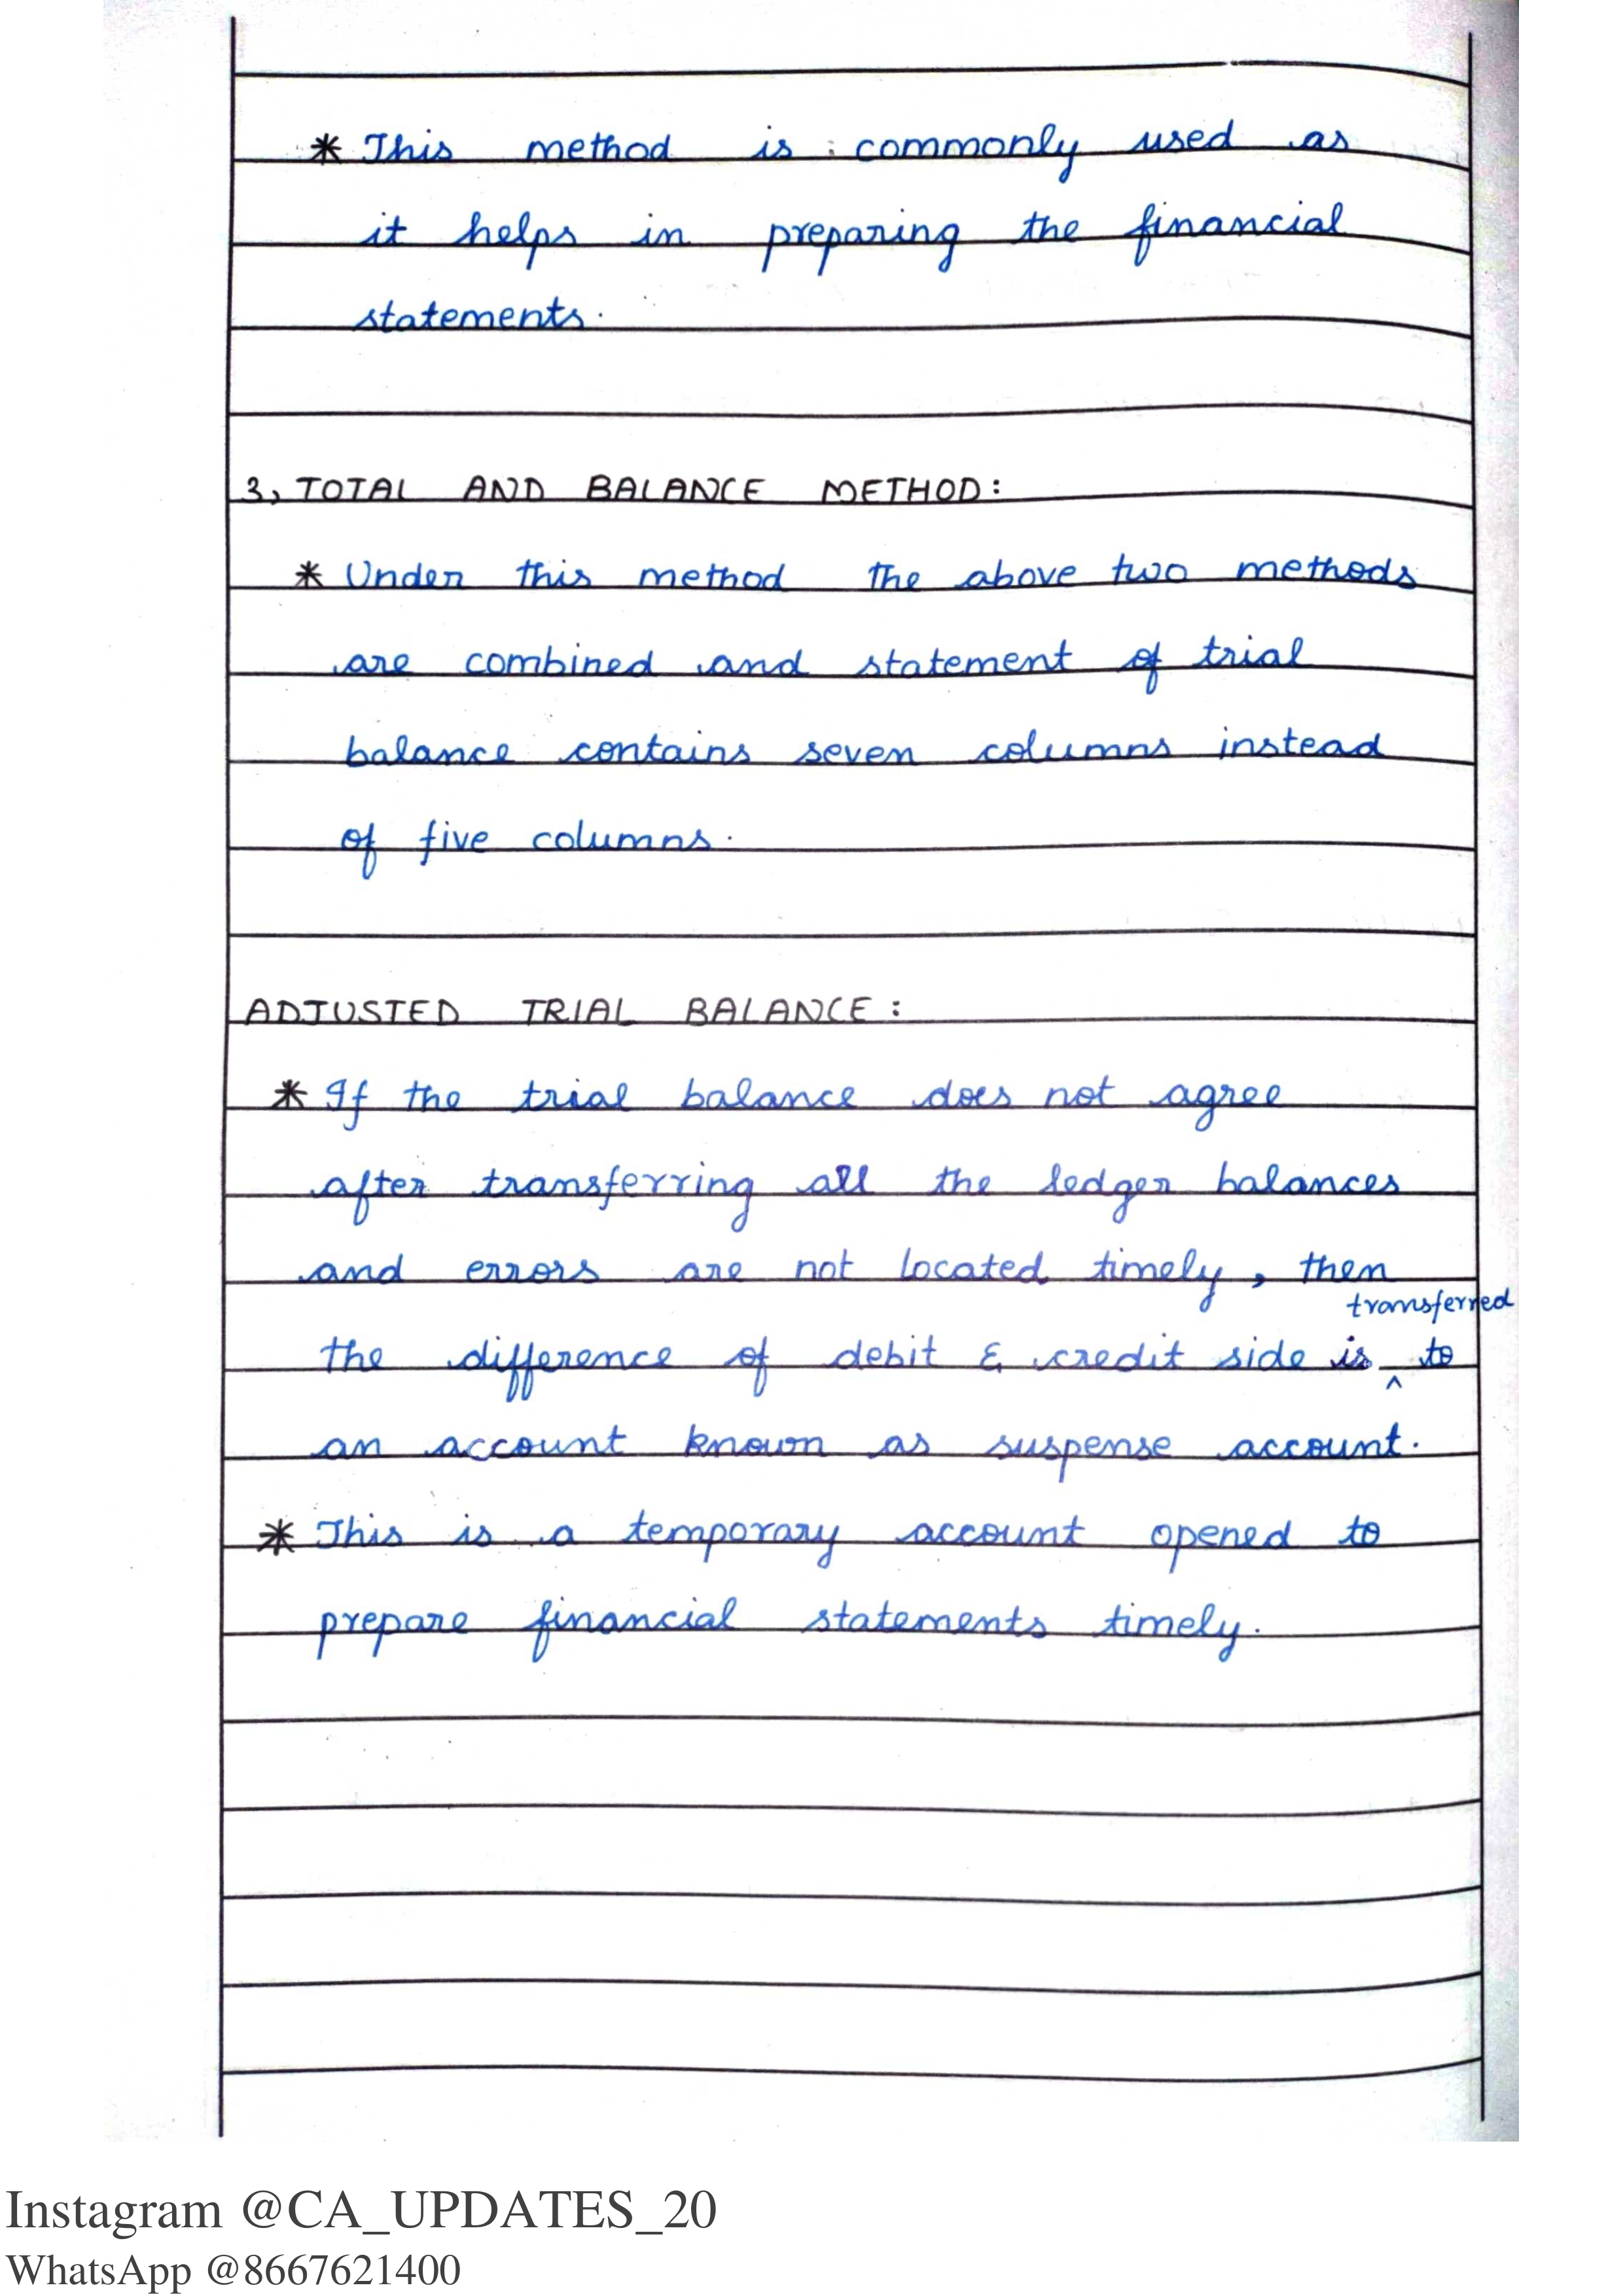 * This method is commonly used as
it helps in preparing the financial
statements.
3, TOTAL AND BALANCE METHOD:
* Under this method the above two methods
are combined and statement of trial
balance contains seven columns instead
of five columns.
ADJUSTED TRIAL BALANCE:
* If the trial balance does not agree
after transferring all the ledger balances
and errors are not located timely, then
transferred
the difference of debit & credit side is ^ to
an account known as suspense account.
* This is a temporary account opened to
prepare financial statements timely.
Instagram @CA_UPDATES_20
WhatsApp @8667621400